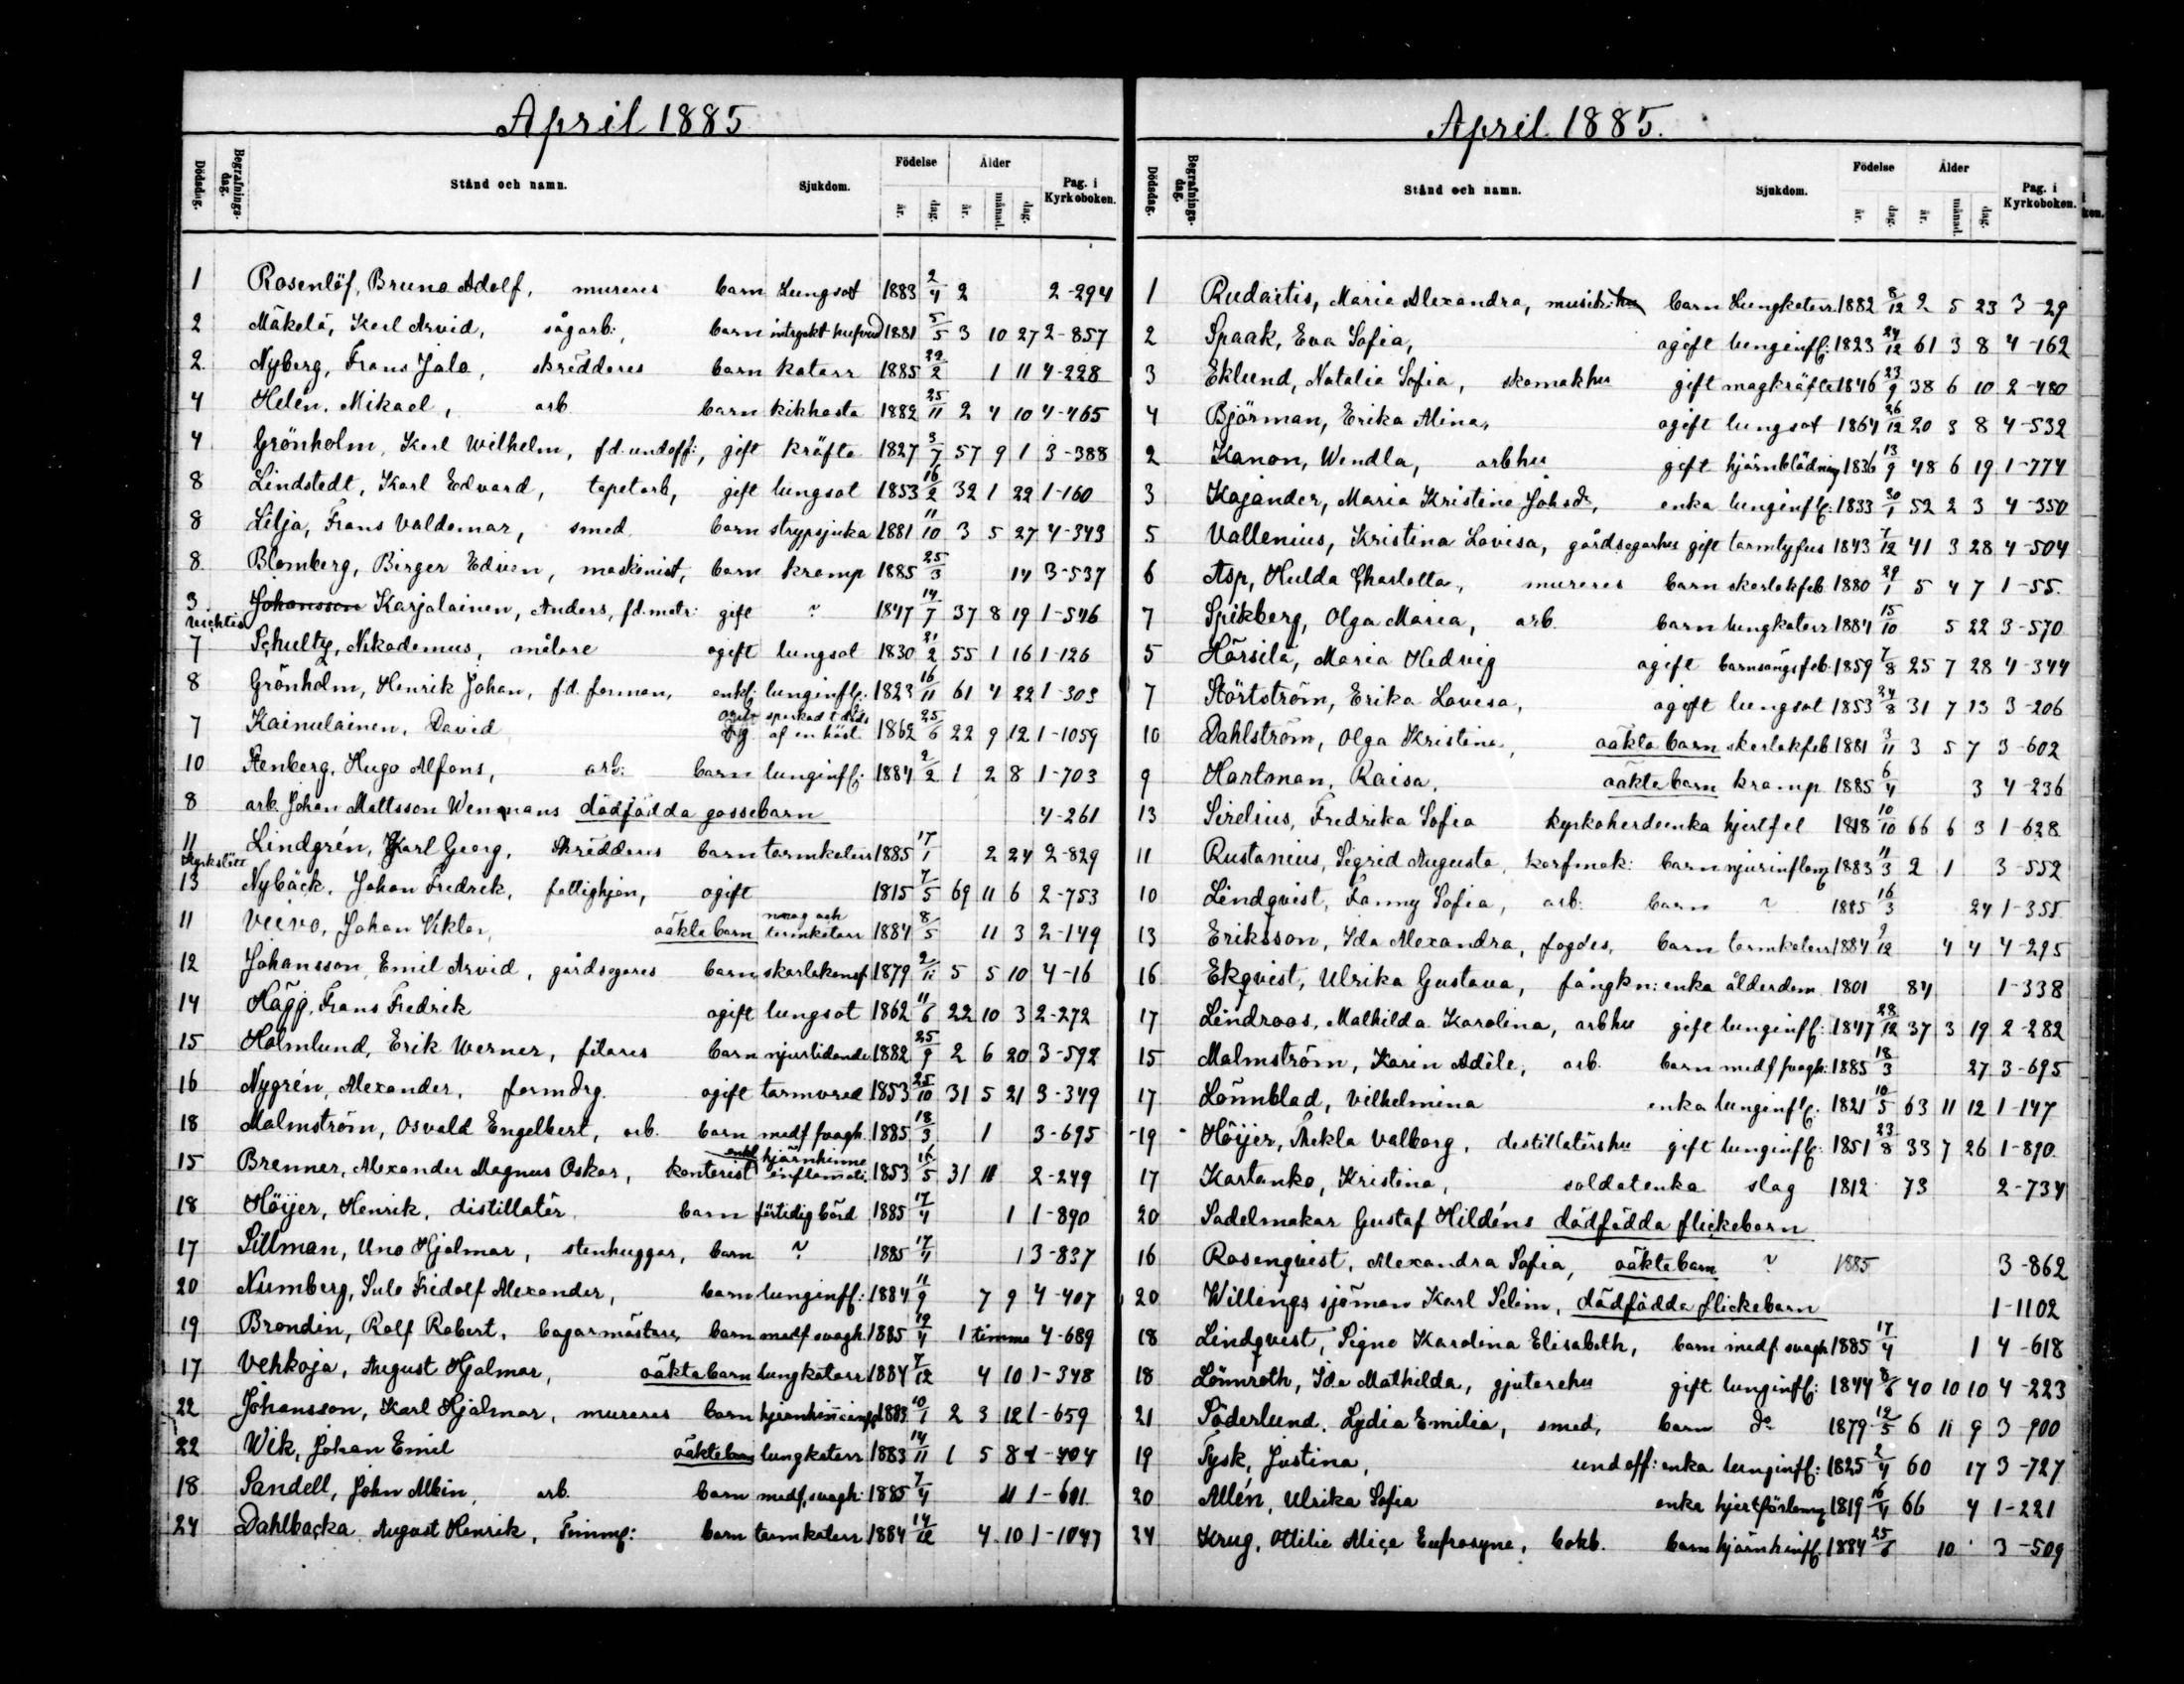 April 1885
Dödsdag. Begrafnings-dag. Stånd och namn. Sjukdom. Födelse år. dag. Ålder år. månad. dag. Pag. i Kyrkoboken.
1 Rosenlöf, Bruno Adolf, mureres barn Lungsot 1883 2/4 2 2-294
2 Mäkelä, Karl Arvid, sågarb:, barn 1881 5/5 3 10 27 2-857
2 Nyberg, Frans Jalo, skrädderes barn katarr 1885 22/2 1 11 4-228
4 Helén, Mikael, arb barn kikhosta 1882 25/11 2 4 10 4-465
4 Grönholm, Karl Wilhelm, fd. undoff:, gift kräfta 1827 3/7 57 9 1 3-388
8 Lindstedt, Karl Edvard, tapetarb, gift lungsot 1853 16/2 32 1 22 1-160
8 Lilja, Frans Valdemar, smed barn strypsjuka 1881 11/10 3 5 27 4-343
8 Blomberg, Birger Edvin, maskinist, barn kramp 1885 25/3 14 3-537
3 Johansson Karjalainen, Anders, fd. matr: gift ? 1847 14/7 37 8 19 1-546
Wichtis
7 Schultz, Nikodemus, målare ogift lungsot 1830 21/2 55 1 16 1-126
8 Grönholm, Henrik Johan, fd. forman, enkl: lunginfl: 1823 16/11 61 4 22 1-303
7 Kainulainen, David sparkad t. döds af en häst 1862 25/6 22 9 12 1-1059
10 Stenberg, Hugo Alfons, arb: barn lunginfl: 1884 2/2 1 2 8 1-703
8 arb. Johan Mattsson Wenmans dödfödda gossebarn 4-261
11 Lindgrén, Karl Georg, Skrädderes barn tarmkatarr 1885 17/1 2 24 2-829
Kyrkslätt
13 Nybäck, Johan Fredrik, fattighjon, ogift 1815 7/5 69 11 6 2-753
11 Veivo, Johan Viktor, oäkta barn mag och tarmkatarr 1884 8/5 11 3 2-149
12 Johansson, Emil Arvid, gårdsegares barn skarlakansf 1879 2/11 5 5 10 4-16
14 Hägg, Frans Fredrik ogift lungsot 1862 11/6 22 10 3 2-272
15 Holmlund, Erik Werner, filares barn njurlidande 1882 25/9 2 6 20 3-592
16 Nygrén, Alexander, formdrg. ogift tarmvred 1853 25/10 31 5 21 3-349
18 Malmström, Osvald Engelbert, arb. barn medf svagh. 1885 18/3 1 3-695
15 Brenner, Alexander Magnus Oskar, kontorist enkl hjärnhinne inflammati: 1853 16/5 31 11 2-249
18 Höijer, Henrik, distillatör barn förtidig börd 1885 17/4 1 1-890
17 Sillman, Uno Hjalmar, stenhuggar, barn ? 1885 17/4 1 3-837
20 Numberg, Sulo Fridolf Alexander, barn lunginfl: 1884 11/9 7 9 4-407
19 Brondin, Rolf Robert, bagarmästare, barn medf svagh 1885 19/4 1 timme 4-689
17 Vehkoja, August Hjalmar, oäkta barn lungkatarr 1884 7/12 4 10 1-348
22 Johansson, Karl Hjalmar, mureres barn hjärnhinneinfl 1883 10/1 2 3 12 1-659
22 Wik, Johan Emil oäkta barn lungkatarr 1883 14/11 1 5 8 1-404
18 Sandell, John Albin, arb. barn medf. svagh: 1885 7/4 11 1-601
24 Dahlbacka August Henrik, Timmf: barn tarmkatarr 1884 14/12 4 10 1-1047
April 1885.
Dödsdag. Begrafnings-dag. Stånd och namn. Sjukdom. Födelse år. dag. Ålder år. månad. dag. Pag. i Kyrkoboken.
1 Rudaitis, Maria Alexandra, musik: hu barn Lungkatarr 1882 8/12 2 5 23 3-29
2 Spaak, Eva Sofia, ogift lunginfl: 1823 24/12 61 3 8 4-162
3 Eklund, Natalia Sofia, skomakhu gift magkräfta 1846 23/9 38 6 10 2-480
4 Björman, Erika Alina, ogift lungsot 1864 26/12 20 3 8 4-532
2 Kanon, Wendla, arbhu gift hjärnblödning 1836 13/9 48 6 19 1-774
3 Kajander, Maria Kristina Johsdr, enka lunginfl: 1833 30/1 52 2 3 4-350
5 Vallenius, Kristina Lovisa, gårdsegarhu gift tarmtyfus 1843 7/12 41 3 28 4-504
6 Asp, Hulda Charlotta, mureres barn skarlakfeb 1880 29/1 5 4 7 1-55.
7 Spikberg, Olga Maria, arb. barn lungkatarr 1884 15/10 5 22 3-570
5 Härsilä, Maria Hedvig ogift barnsängsfeb. 1859 7/8 25 7 28 4-344
7 Störtström, Erika Lovisa, ogift lungsot 1853 24/8 31 7 13 3-206
10 Dahlström, Olga Kristina, oäkta barn skarlakfeb 1881 3/11 3 5 7 3-602
9 Hartman, Raisa, oäkta barn kramp 1885 6/4 3 4-236
13 Sirelius, Fredrika Sofia kyrkoherdeenka hjertfel 1818 10/10 66 6 3 1-628
11 Rustanius, Sigrid Augusta, korfmak: barn njurinflam 1883 11/3 2 1 3-552
10 Lindqvist, Fanny Sofia, arb: barn ? 1885 16/3 24 1-355
13 Eriksson, Ida Alexandra, fogdes, barn tarmkatarr 1884 9/12 4 4 4-295
16 Ekqvist, Ulrika Gustava, fångkn: enka ålderdom 1801 84 1-338
17 Lindroos, Mathilda Karolina, arbhu gift lunginfl: 1847 28/12 37 3 19 2-282
15 Malmström, Karin Adéle, arb. barn medf svagh: 1885 18/3 27 3-695
17 Lönnblad, Vilhelmina enka lunginfl: 1821 10/5 63 11 12 1-147
19 Höijer, Thekla Valborg, destillatörshu gift lunginfl: 1851 23/8 33 7 26 1-890
17 Kartanko, Kristina, soldatenka slag 1812 73 2-734
20 Sadelmakar Gustaf Hildéns dödfödda flickebarn
16 Rosenqvist, Alexandra Sofia, oäkta barn ? 1885 3-862
20 Willings sjöman Karl Selim, dödfödda flickebarn 1-1102
18 Lindqvist, Signe Karolina Elisabeth, barn medf svagh 1885 17/4 1 4-618
18 Lönnroth, Ida Mathilda, gjutarehu gift lunginfl: 1844 8/6 40 10 10 4-223
21 Söderlund, Lydia Emilia, smed, barn do 1879 12/5 6 11 9 3-900
19 Tysk, Justina, undoff: enka lunginfl: 1825 2/4 60 17 3-727
20 Allén, Ulrika Sofia enka hjertförlamg 1819 16/4 66 4 1-221
24 Krug, Ottilie Alice Eufrosyne, bokb. barn hjärnhinfl. 1884 25/6 10 3-509